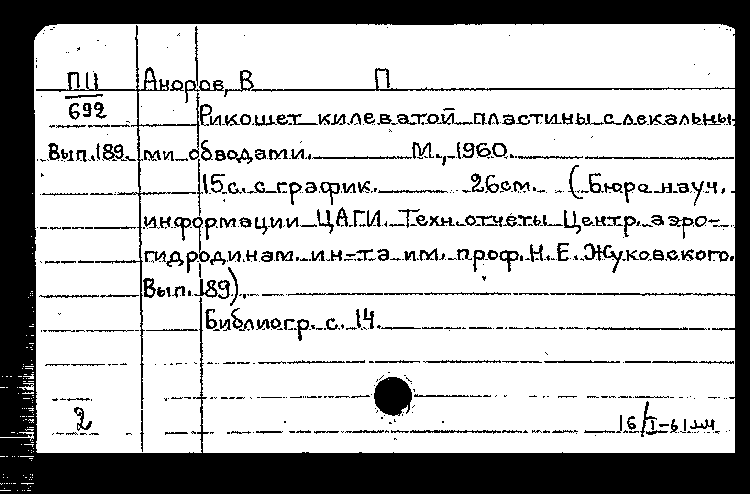 П11 Аноров, В П
692 Рикошет килеватой пластины с лекальны-
Вып.189. ми обводами. М., 1960.
15с. с график. 26см. (Бюро науч.
информации ЦАГИ. Техн.отчеты Центр. аэро-
гидродинам. ин-та им. проф. Н. Е. Жуковского.
Вып. 189).
Библиогр. с. 14.
2 16/I-61